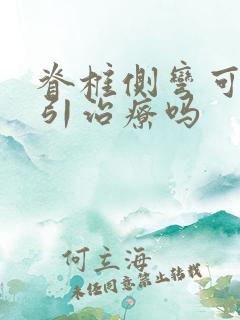 脊柱侧弯可
引治疗吗
何立海
未经同意禁止转载